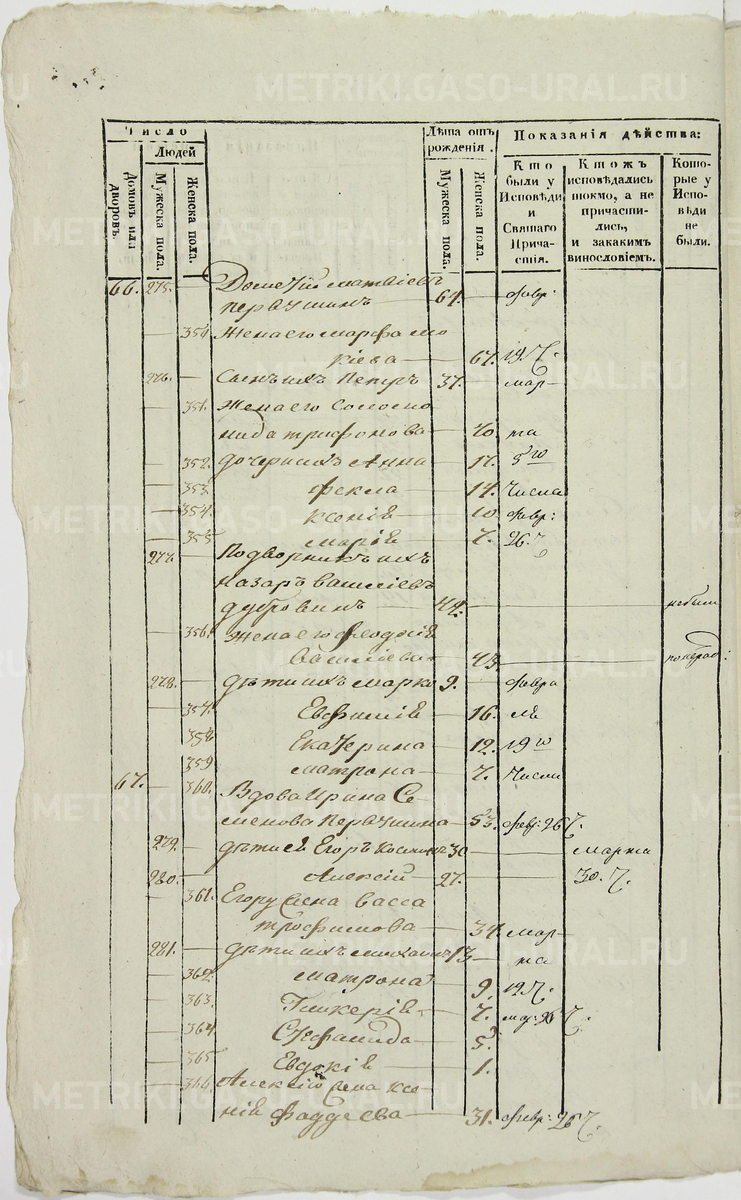 METRIKI.GASO-URAL.RU
Число
Людей
Домовъ или дворовъ.
Мужеска пола.
Женска пола.
Лѣта отъ рожденія.
Мужеска пола.
Женска пола.
Показанія дѣйства:
Кто были у Исповѣди и Святаго Причастія.
Ктожъ исповѣдались токмо, а не причастились, и закакимъ винословіемъ.
Которые у Исповѣди не были.
66. 275. Дометій Матвіевъ
Перачшинъ 64. февр:
350 Жена его Марфа Мо
кіева 67. 19 Ч.
276. Сынъ ихъ Петръ 37. мар
351. Жена его Соломо
нида трифонова 40. та
352. дочери ихъ Анна 17. 5го
353 фекла 14. Числа
354. ксенія 10. февр:
355 марія 7. 26. Ч
277. Подворникъ ихъ
назаръ васіліевъ
дубровинъ 44. небыли
356. Жена его феодосія
Васіліева 43.
278. дѣти ихъ марко 9. февра
357. Евфимія 16. ля
358 Екатерина 12. 19го
359 матрона 7. Числа
67. 360. Вдова Ирина Се
менова Перачшина 53. февр: 26 Ч.
279. дѣти ея Егоръ 30 марта
280. Алексій 27. 30. Ч.
361. Егору жена васса
трофимова 34. мар
281. дѣти ихъ михаилъ 13 та
362. матрона 9. 19 Ч.
363. Гликерія 7. мар: 26 Ч.
364 Стефанида 5
365 Евдокія 1.
366 Алексію жена ксе
нія фаддеева 31. февр: 26 Ч.